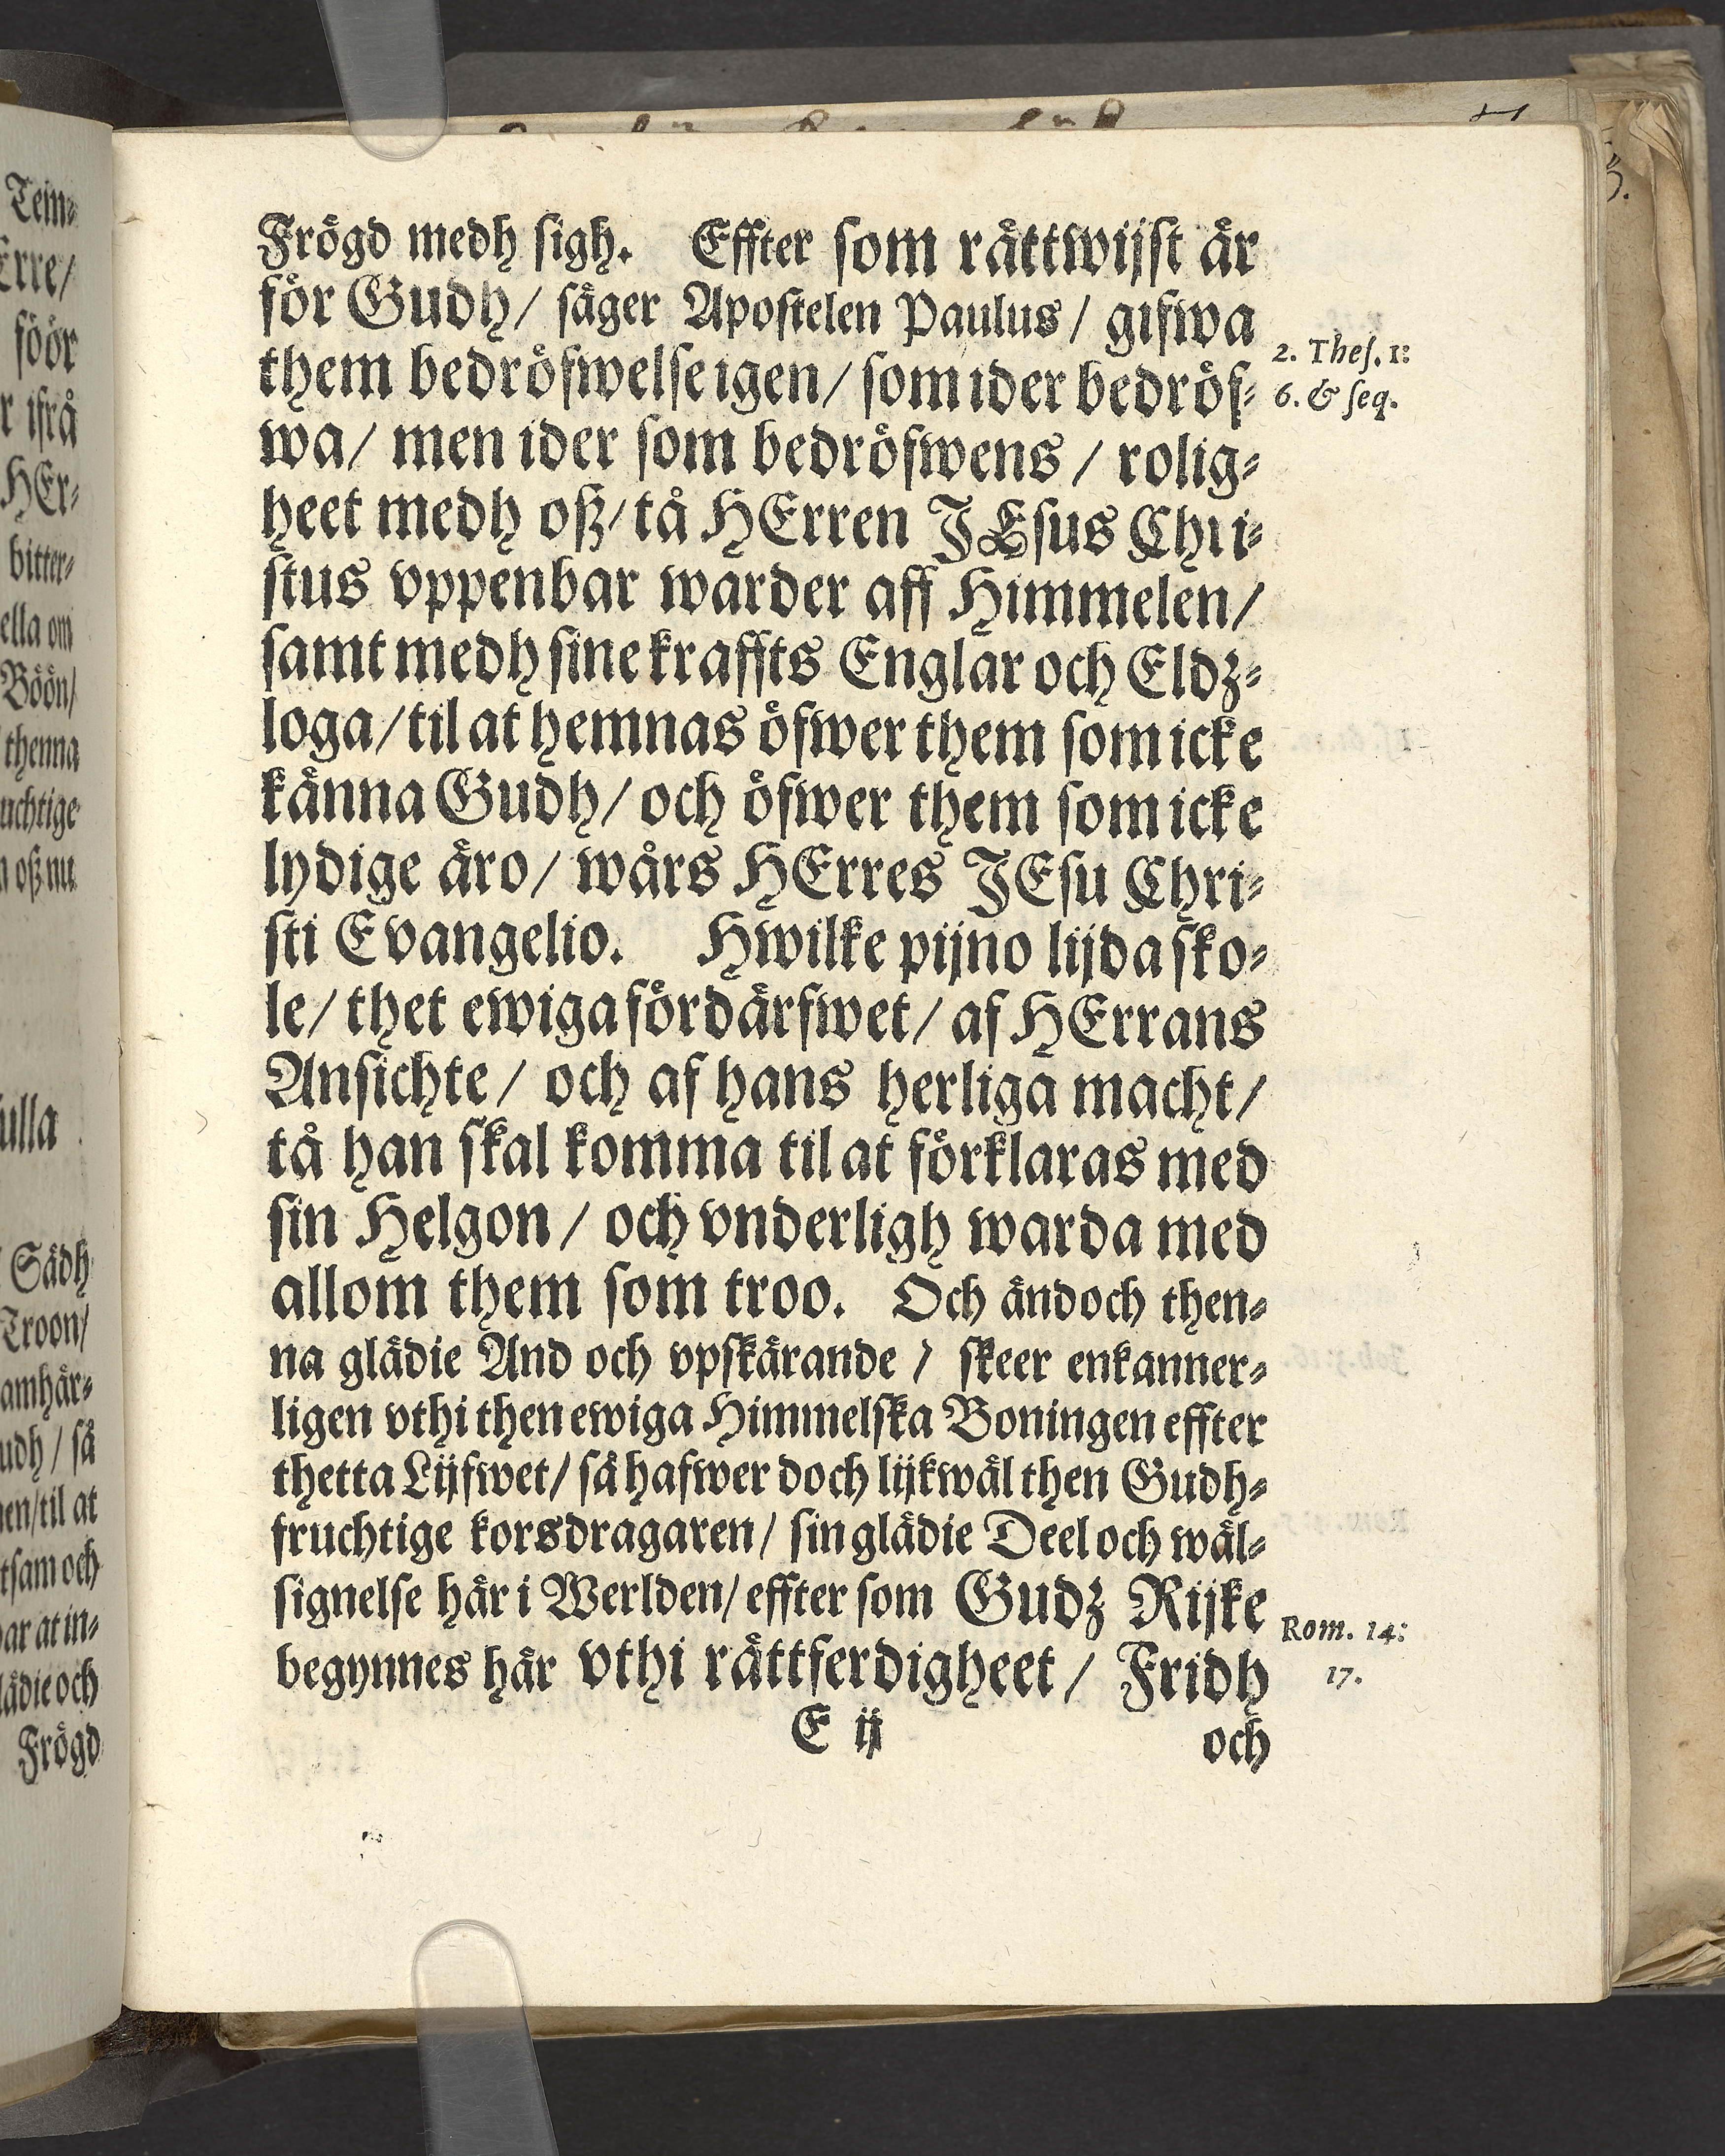 Frögd medh sigh. Effter som rättwijst är
för Gudh/ säger Apostelen Paulus/ gifwa
them bedröfwelse igen/ som ider bedröf-
wa/ men ider som bedröfwens/ rolig-
heet medh oß/ tå HErren JEsus Chri-
stus vppenbar warder aff Himmelen/
samt medh sine kraffts Englar och Eldz-
loga/ til at hemnas öfwer them som icke
känna Gudh/ och öfwer them som icke
lydige äro/ wårs HErres JEsu Chri-
sti Evangelio. Hwilke pijno lijda sko-
le/ thet ewiga fördärfwet/ af HErrans
Ansichte/ och af hans herliga macht/
tå han skal komma til at förklaras med
sin Helgon/ och vnderligh warda med
allom them som troo. Och ändoch then-
na glädie And och vpskärande/ skeer enkanner-
ligen vthi then ewiga Himmelska Boningen effter
thetta Lijfwet/ så hafwer doch lijkwäl then Gudh-
fruchtige korsdragaren/ sin glädie Deel och wäl-
signelse här i Werlden/ effter som Gudz Rijke
begynnes här vthi rättferdigheet/ Fridh
E ij
och
2. Thes. 1:
6. & seq.
Rom. 14:
17.
Tem-
Erre/
föör
r ifrå
HEr-
bitter-
ella om
Böön/
thenna
uchtige
n oß nu
ulla
Sädh
Troon/
amhär-
udh/ så
en/ til at
tsam och
ar at in-
lädie och
Frögd